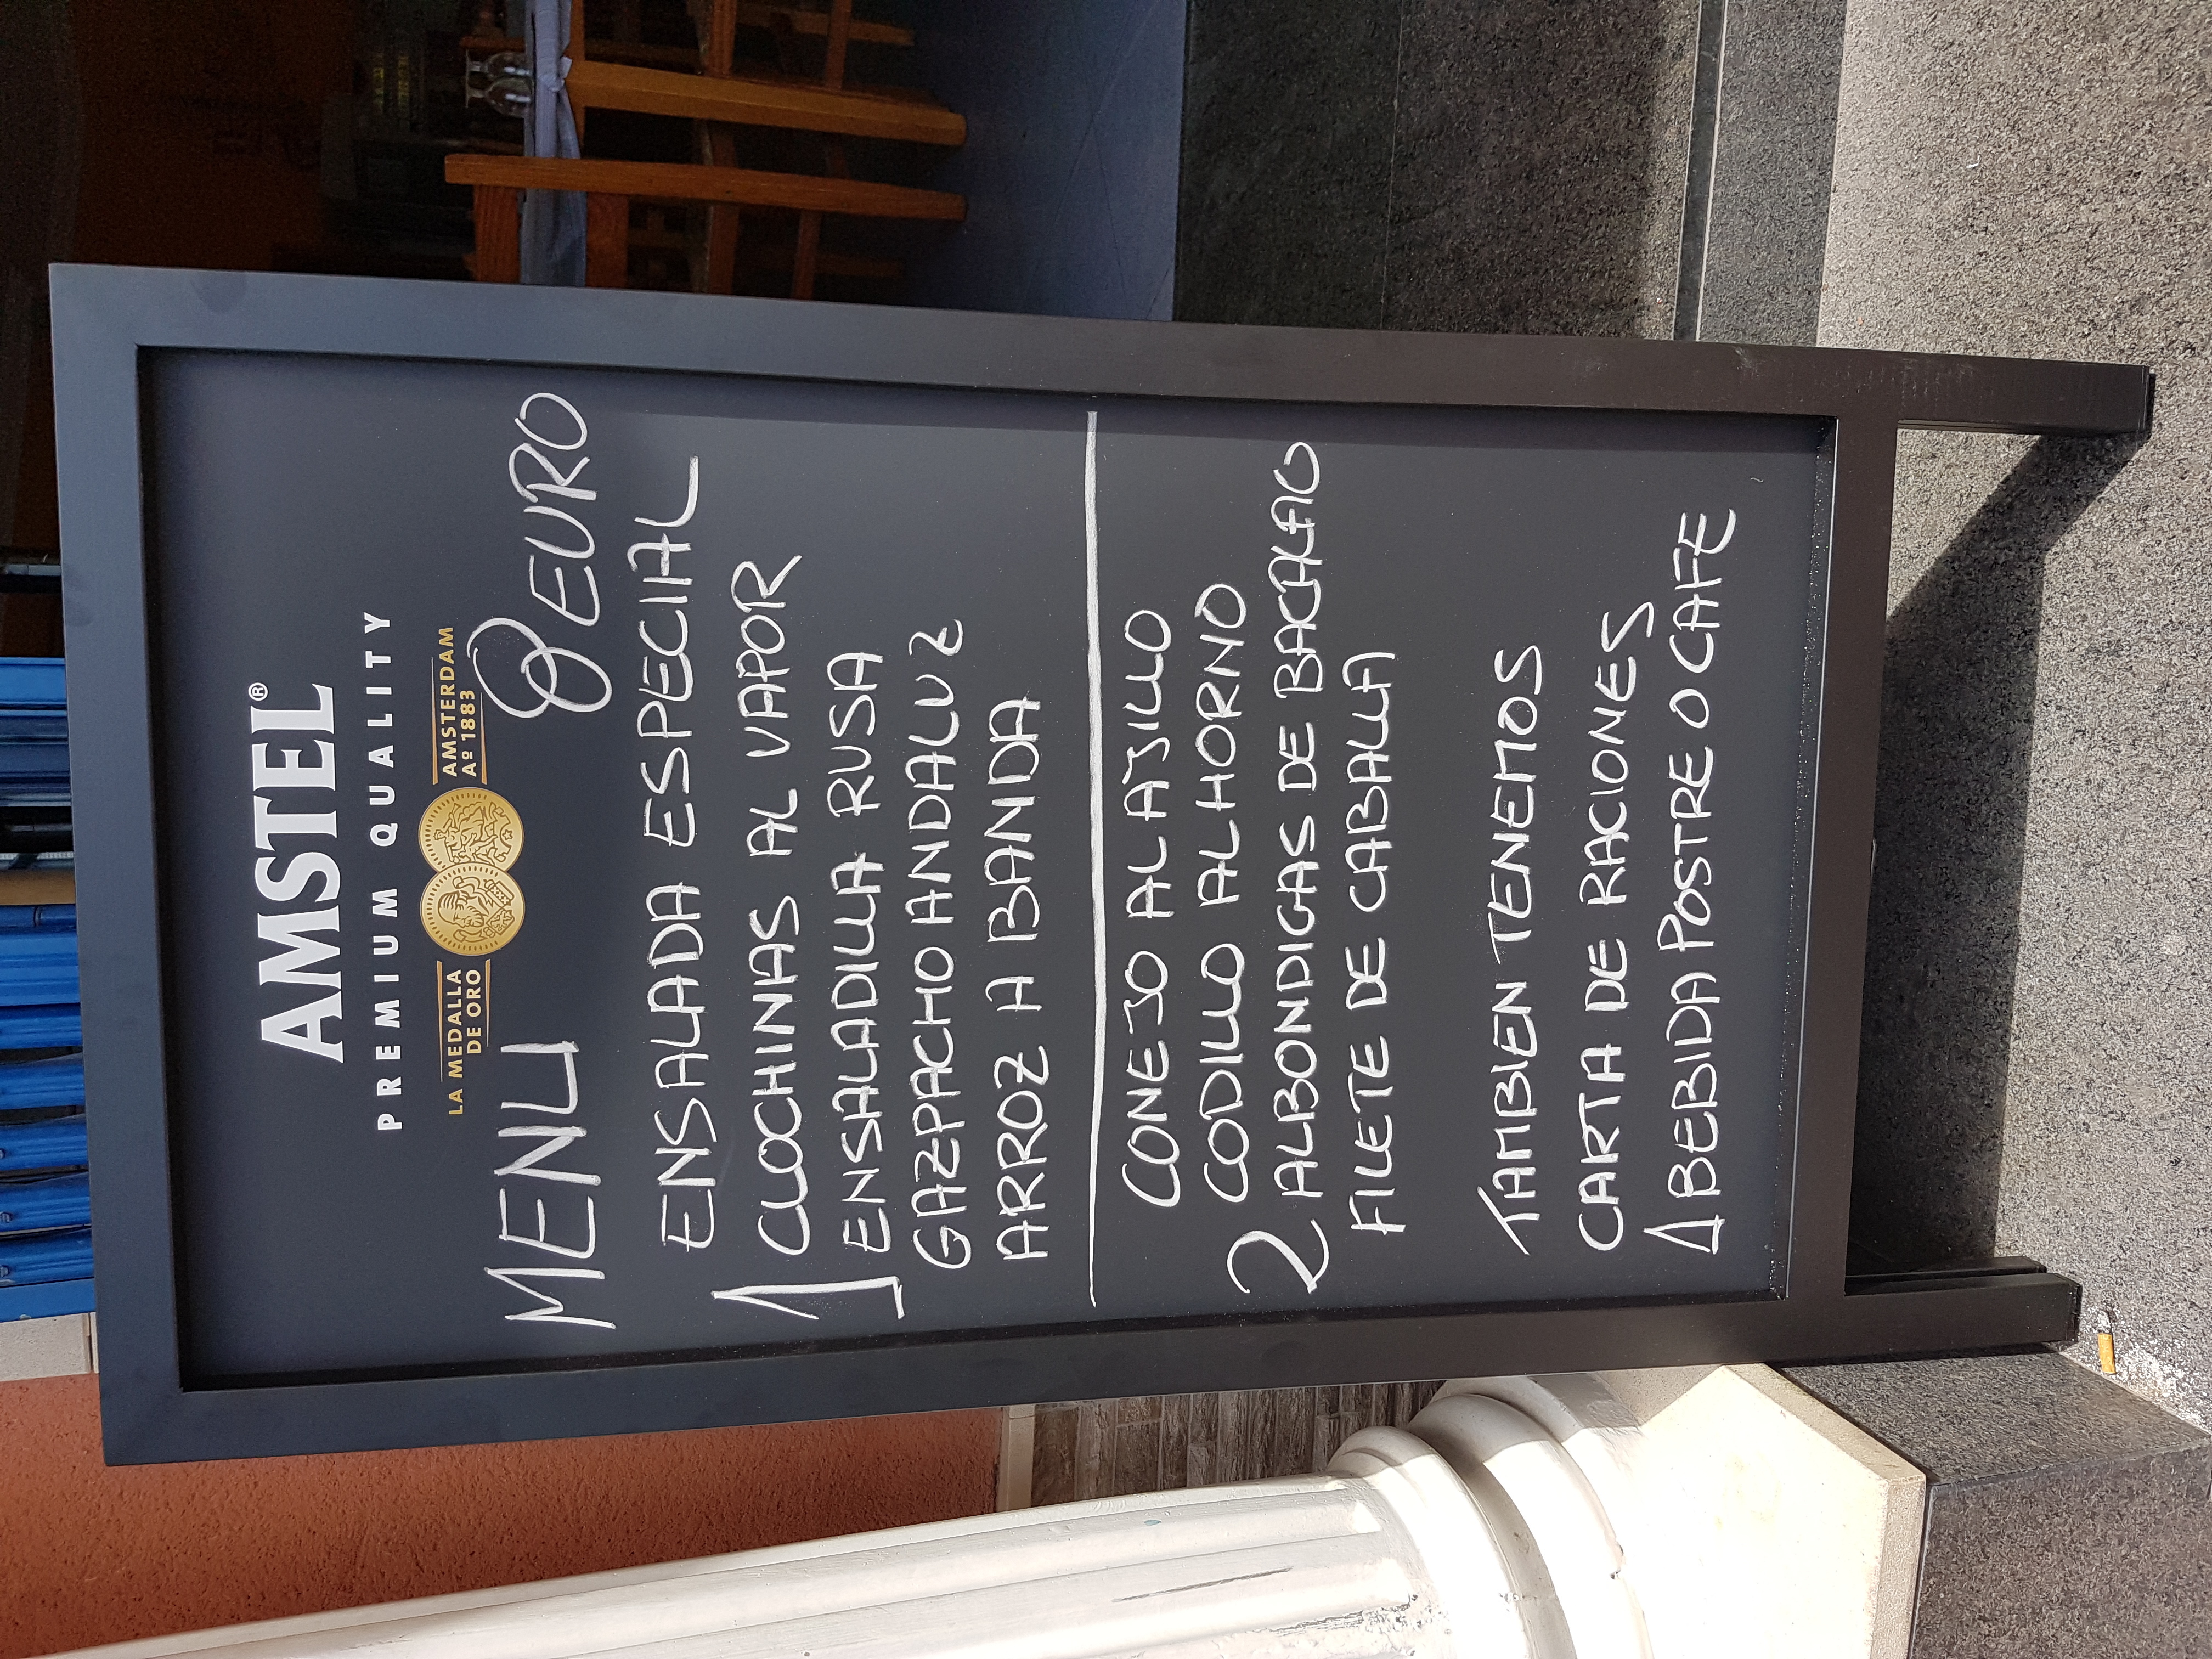 AMSTEL®
PREMIUM QUALITY
LA MEDALLA DE ORO
AMSTERDAM Aº 1883
MENU 8 EURO
ENSALADA ESPECIAL
1 CLOCHINAS AL VAPOR
ENSALADILLA RUSA
GAZPACHO ANDALUZ
ARROZ A BANDA
CONEJO AL AJILLO
CODILLO AL HORNO
2 ALBONDIGAS DE BACALAO
FILETE DE CABALLA
TAMBIEN TENEMOS
CARTA DE RACIONES
1 BEBIDA POSTRE O CAFE